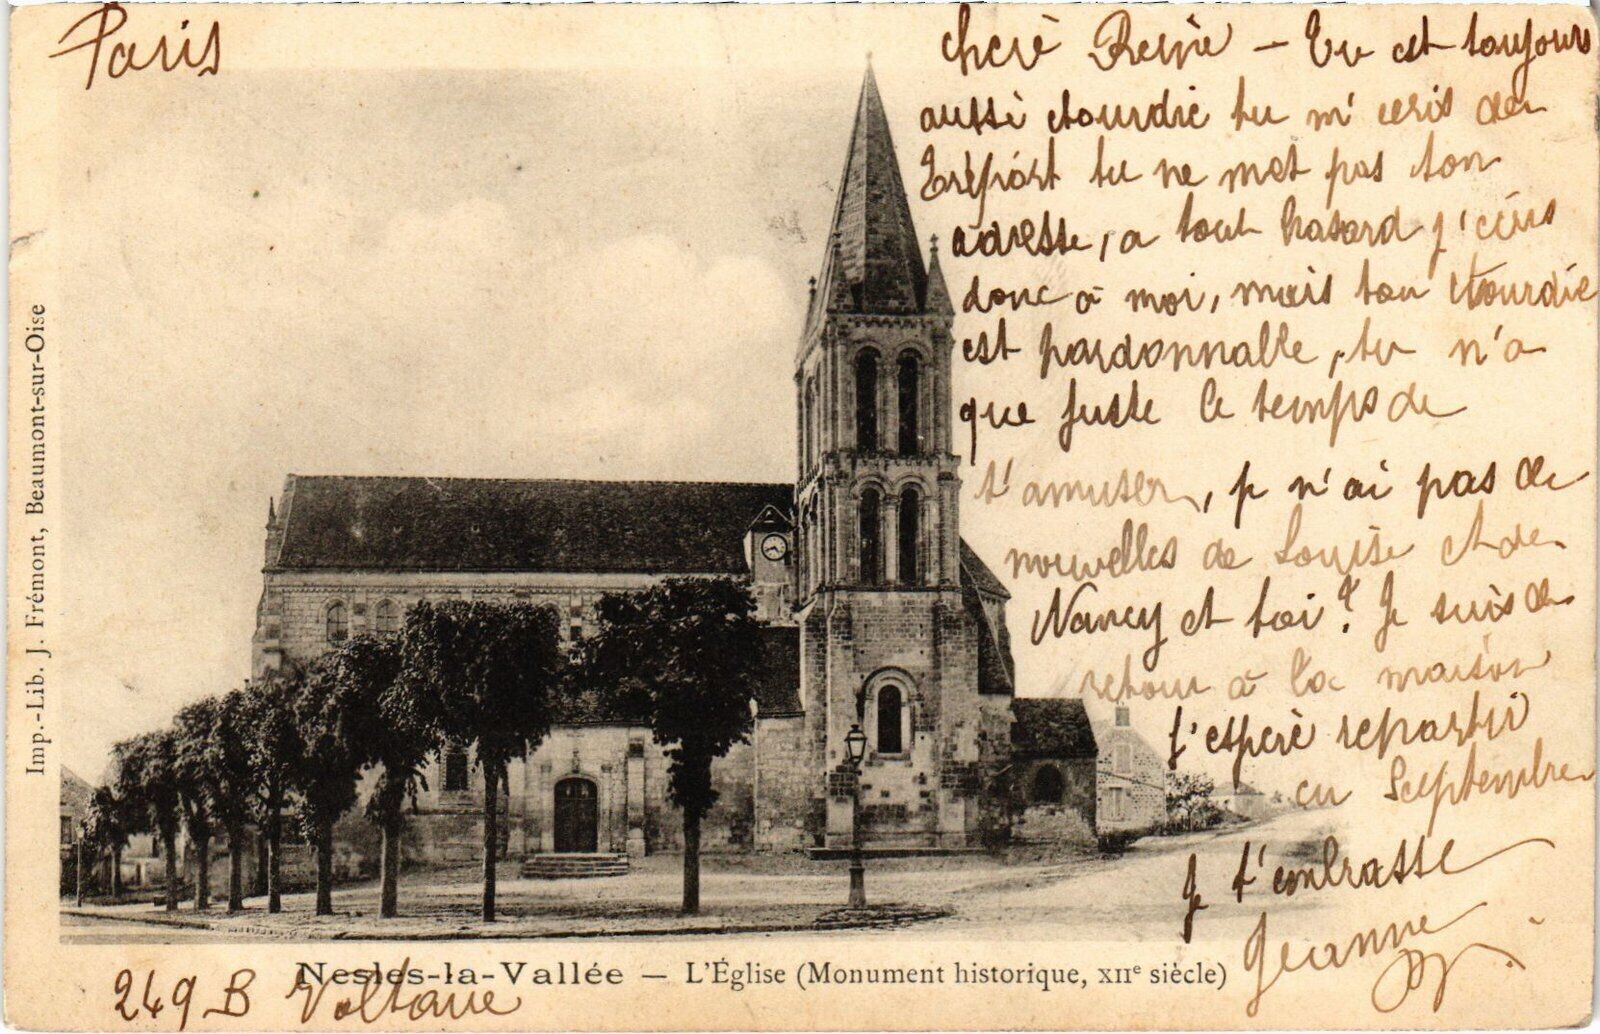 Paris
cherè Reine — Tu est toujours
aussi etourdie tu m'ecris de
Tréport tu ne met pas ton
adresse, a tout hasard j'écris
donc à moi, mais ton etourdie
est pardonnable, tu n'a
que juste le temps de
t'amuser, je n'ai pas de
nouvelles de Louise et de
Nancy et toi? Je suis de
retour à la maison
j'esperè repartir
en Septembre
Je t'embrasse
Jeanne
249 B Voltaire
Nesles-la-Vallée — L'Église (Monument historique, XIIe siècle)
Imp.-Lib. J. Frémont, Beaumont-sur-Oise